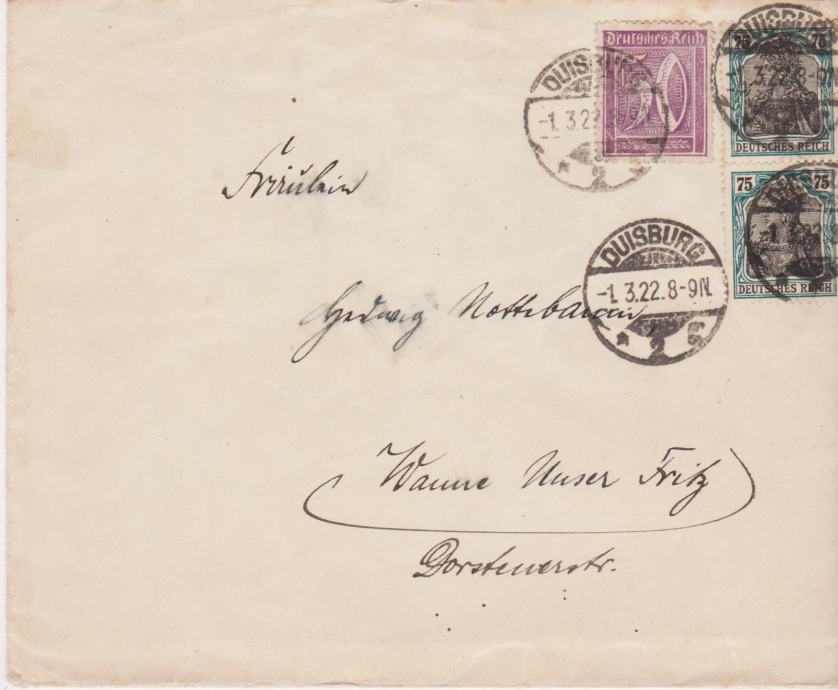 Deutsches Reich
50
75 75
DEUTSCHES REICH
75 75
DEUTSCHES REICH
DUISBURG
-1.3.22.8-9N.
* 2
DUISBURG
-1.3.22.8-9N.
* 2 g
Fräulein
Hedwig Nottebaum
Wanne Unser Fritz
Dorstenerstr.